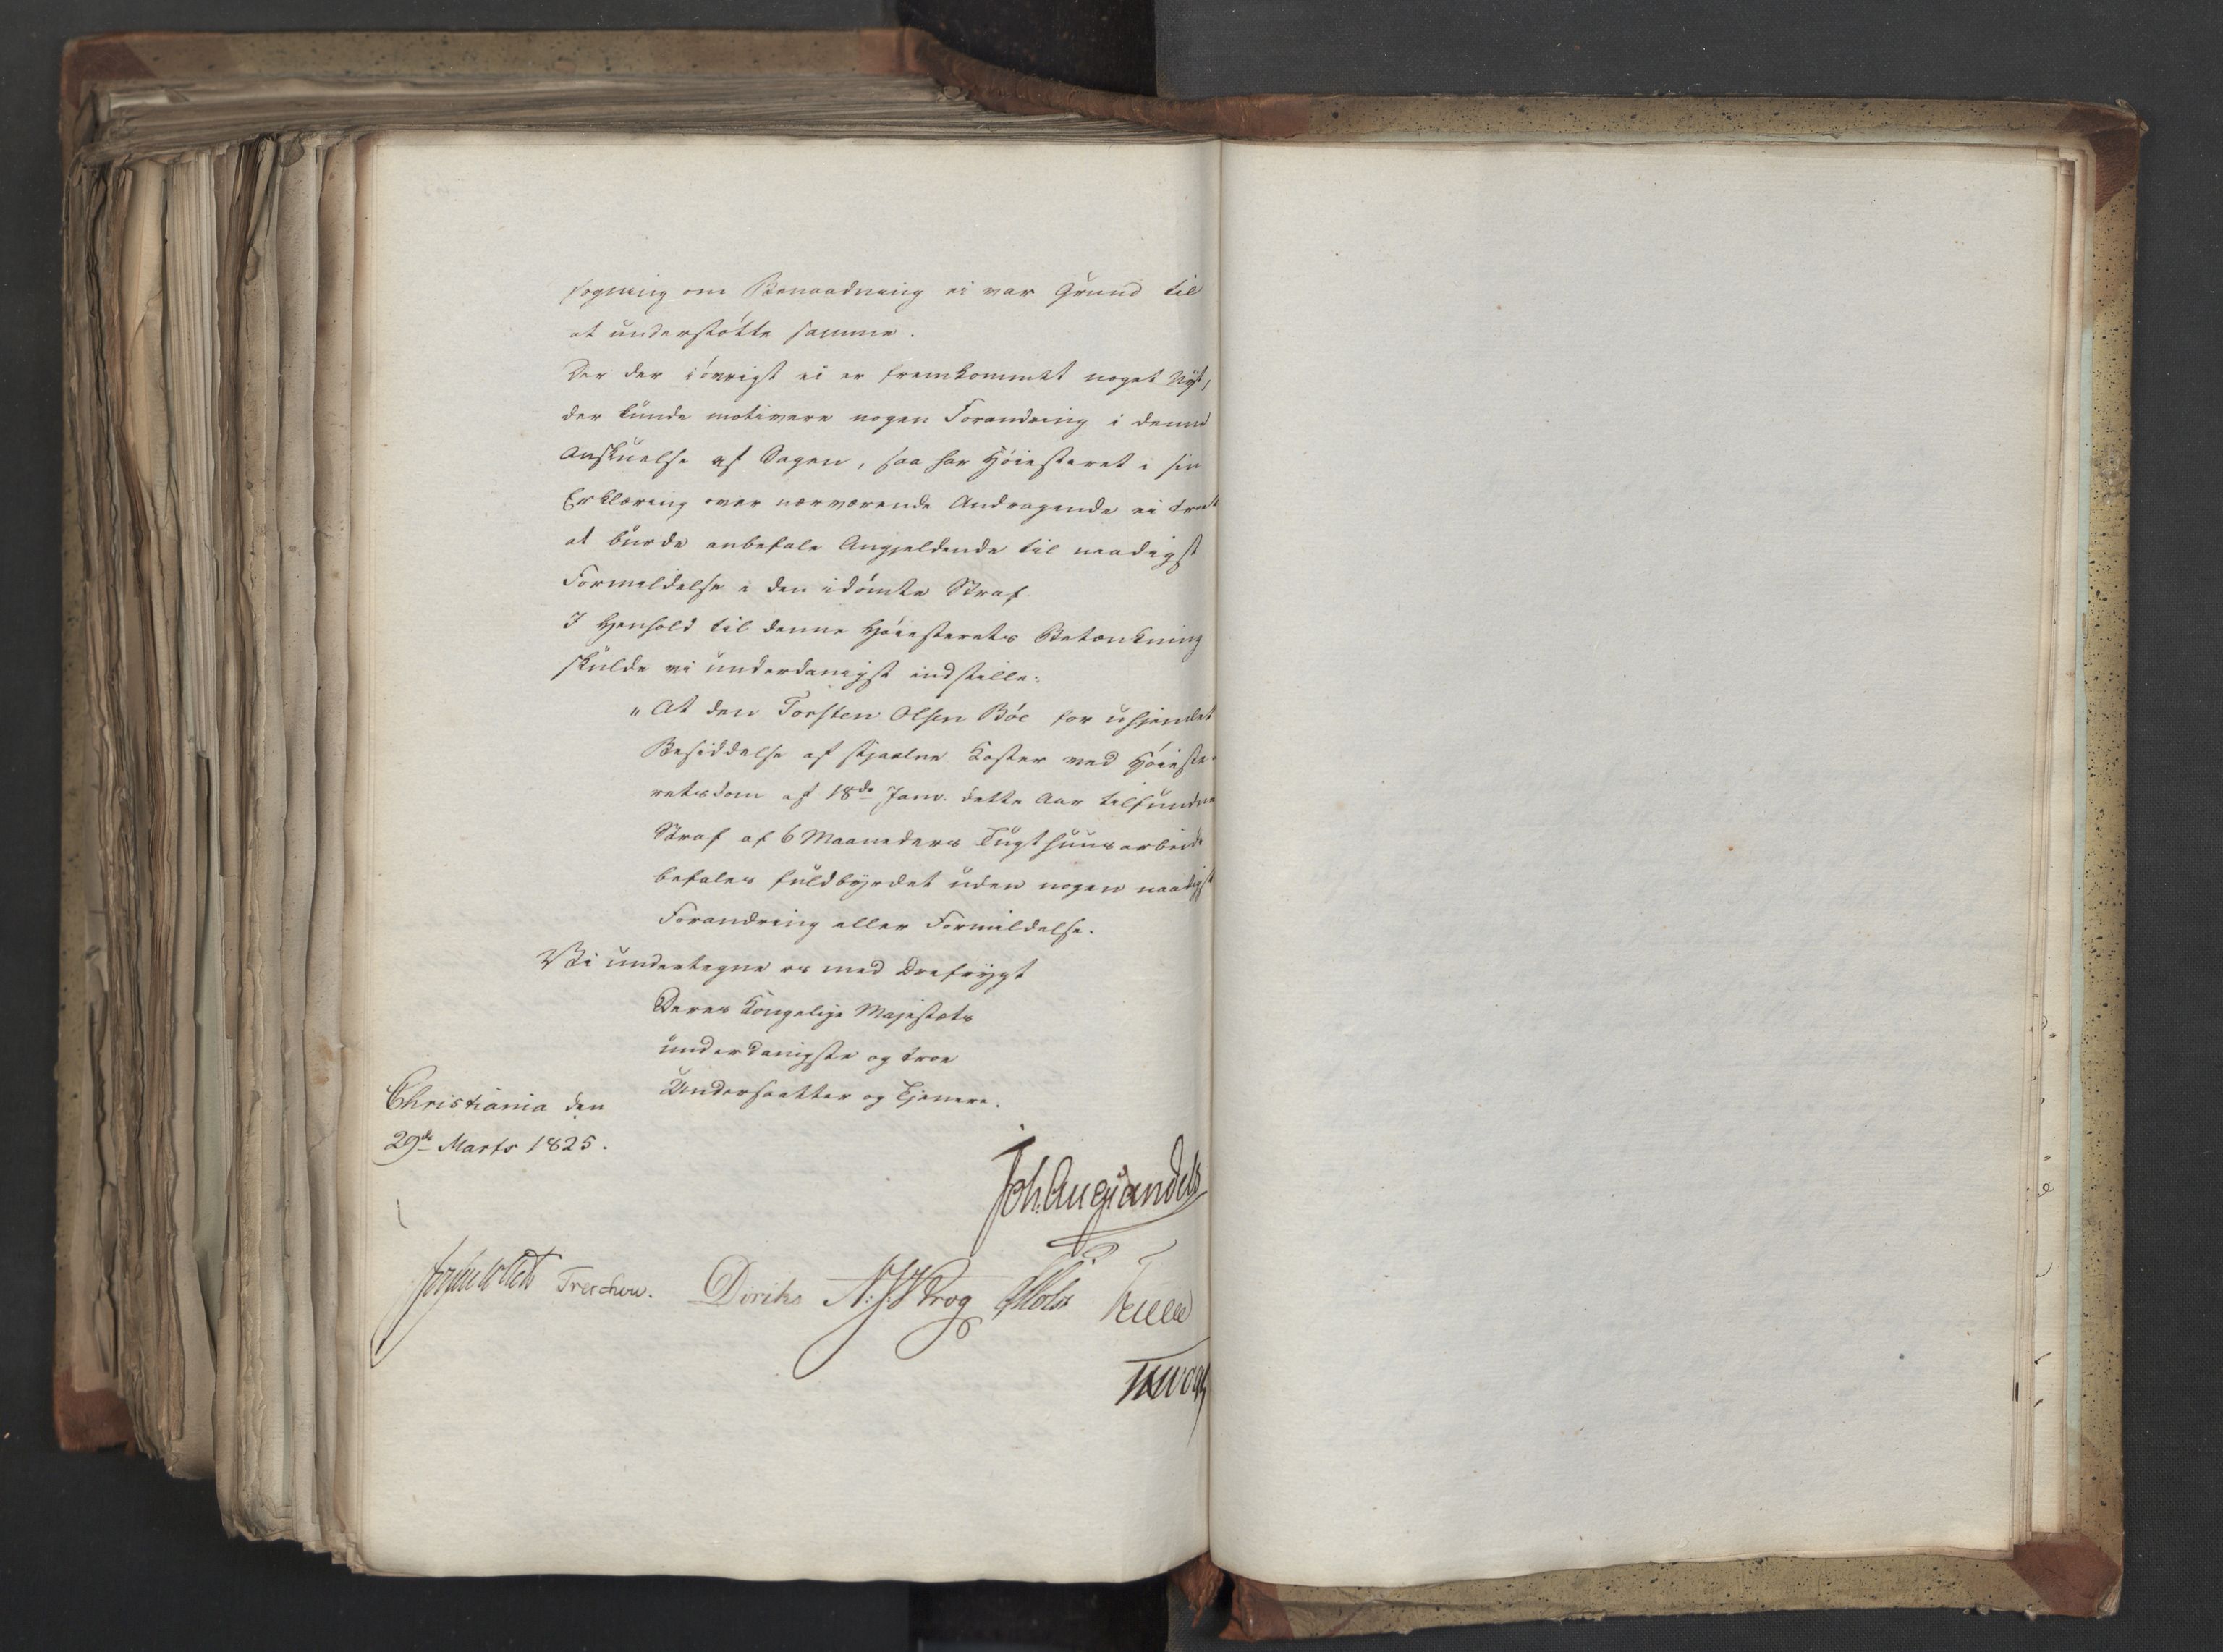 søgning om Benaadning ei var Grund til
at understøtte samme.
Der der iøvrigt ei er fremkommet noget Nyt,
der kunde motivere nogen Forandring i denne
Anskuelse af Sagen, saa har Høiesteret i sin
Erklæring over nærværende Andragende ei troet
at burde anbefale Angjeldende til naadigst
Formildelse i den idømte Straf.
I Henhold til denne Høiesterets Betænkning
skulde vi underdanigst indstille:
"At den Torsten Olsen Bøe for uhjemlet
Besiddelse af stjaalne Koster ved Høieste-
retsdom af 18de Janv. dette Aar tilfundne
Straf af 6 Maaneders Tugthuusarbeide
befales fuldbyrdet uden nogen naadigst
Forandring eller Formildelse.
Vi undertegne os med Ærefrygt
Deres Kongelige Majestæts
underdanigste og troe
Undersaatter og Tjenere.
Christiania den
29de Marts 1825.
Joh. Aug. Sandels
Treschow. Diriks N: J: Krog Holst